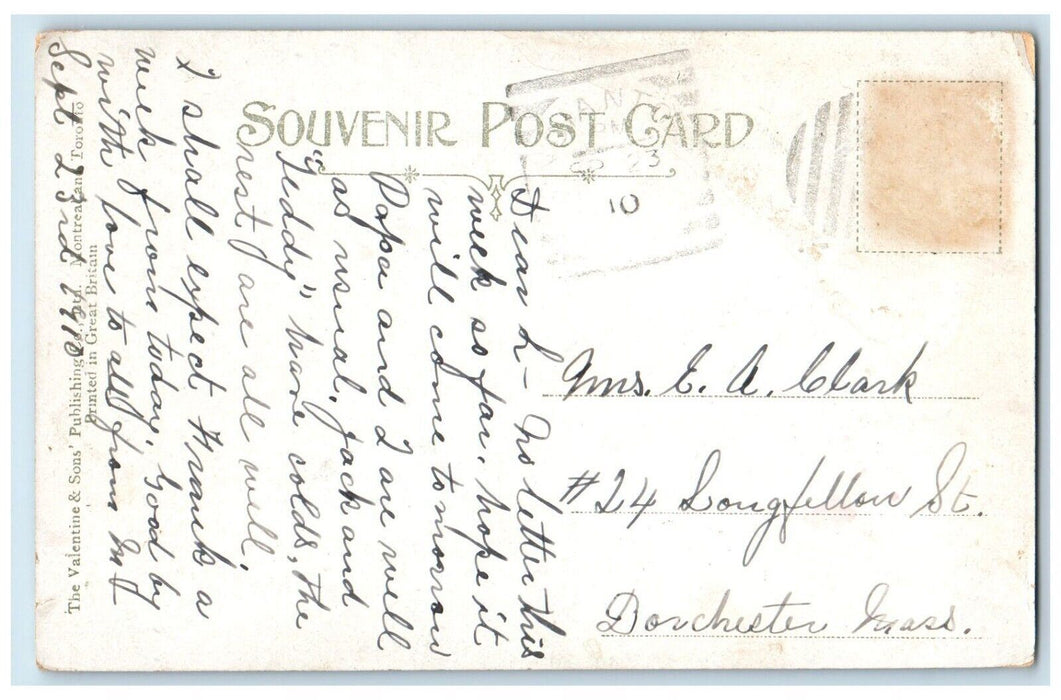 SOUVENIR POST CARD
ANT
23
10
Dear L- No letter this
week so far, hope it
will come tomorrow
Papa and I are well
as usual. Jack and
"Teddy" have colds, the
rest are all well.
I shall expect Frank a
week from today. Good by
with love to all from
Sept 23rd 1910
Mrs. E. A. Clark
#24 Longfellow St.
Dorchester Mass.
The Valentine & Sons' Publishing Co., Ltd. Montreal and Toronto
Printed in Great Britain